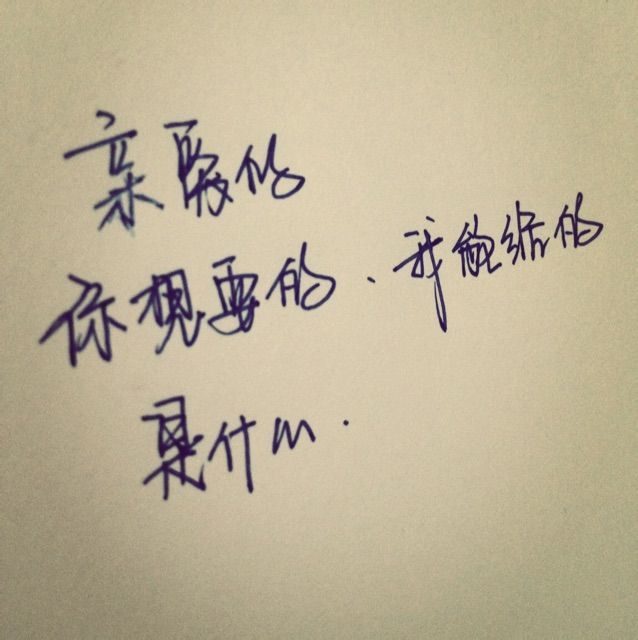 亲爱的
你想要的、我能给的
是什么.